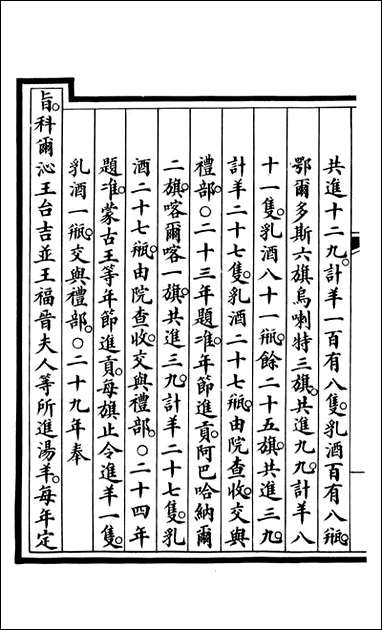 共進十二九。計羊一百有八隻。乳酒百有八瓶。
鄂爾多斯六旗烏喇特三旗。共進九九。計羊八
十一隻。乳酒八十一瓶。餘二十五旗。共進三九。
計羊二十七隻。乳酒二十七瓶。由院查收。交與
禮部。○二十三年題准。年節進貢。阿巴哈納爾
二旗。喀爾喀一旗。共進三九。計羊二十七隻。乳
酒二十七瓶。由院查收。交與禮部。○二十四年
題准。蒙古王等年節進貢。每旗止令進羊一隻。
乳酒一瓶。交與禮部。○二十九年奉
旨。科爾沁王台吉並王福晉夫人等所進湯羊。每年定